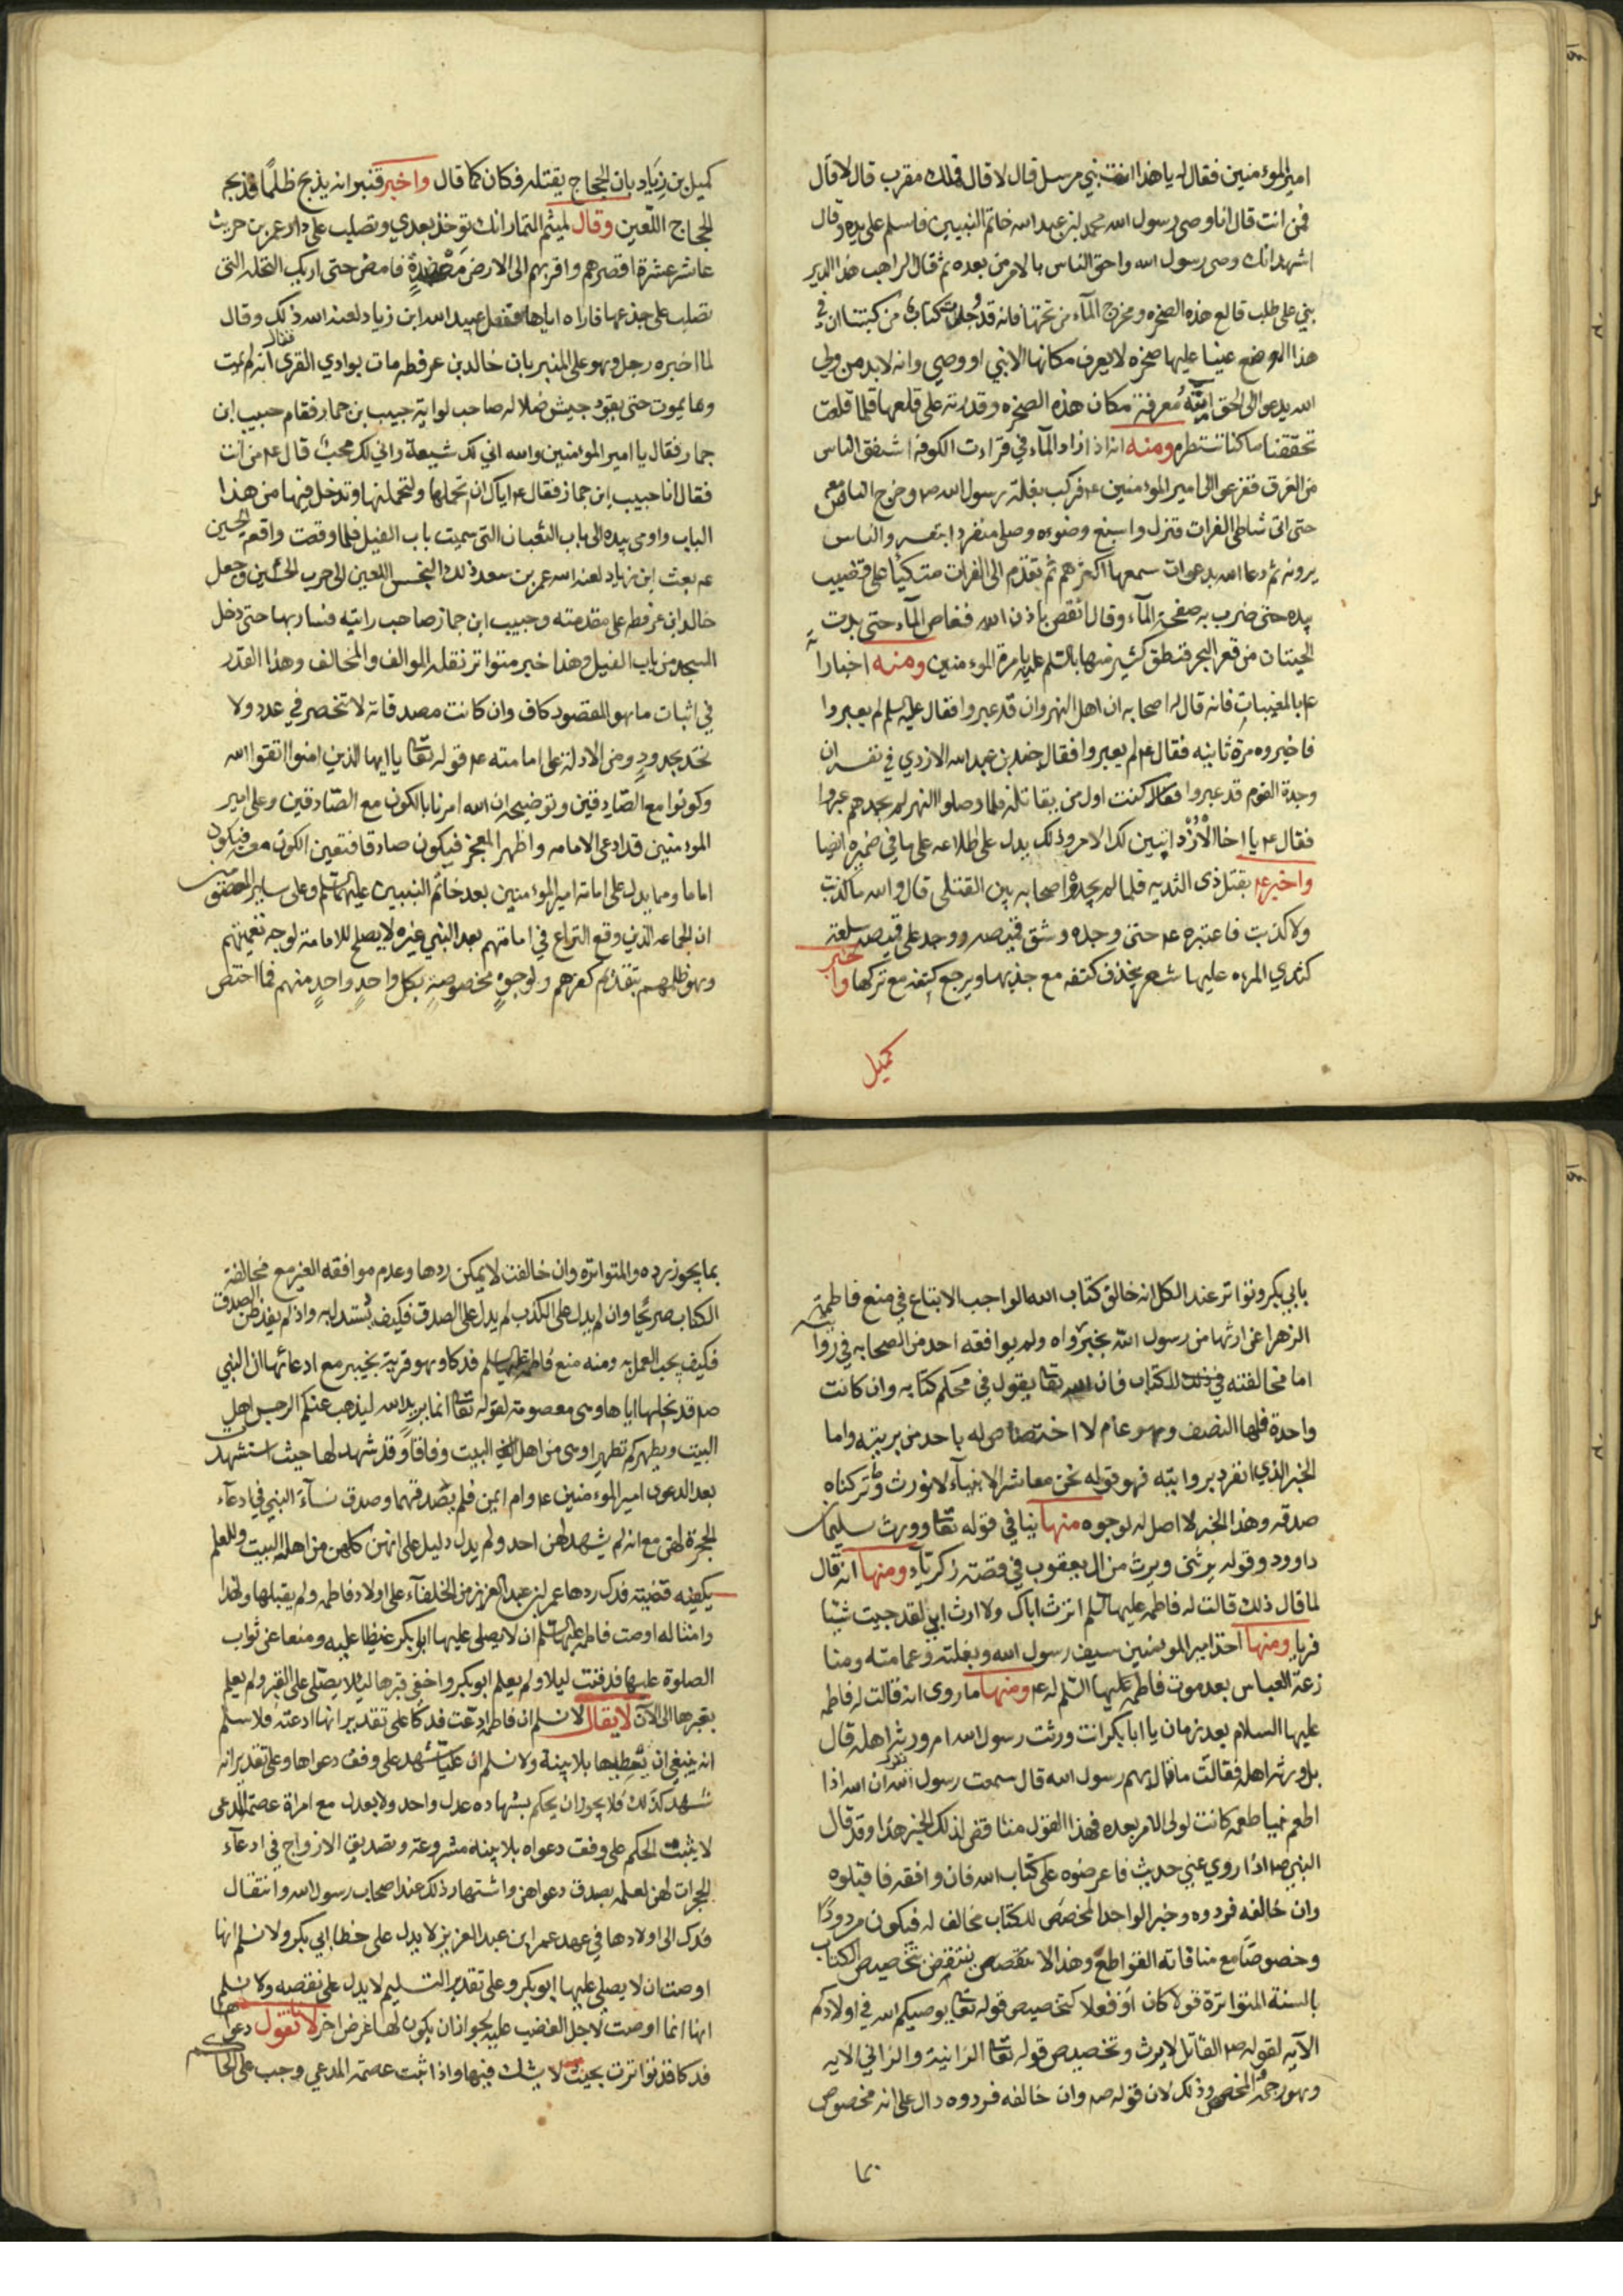 امير المؤمنين فقال له يا هذا انت نبي مرسل قال لا قال فملك مقرب قال لا قال
فمن انت قال انا وصي رسول الله محمد بن عبد الله خاتم النبيين فاسلم على يده وقال
اشهد انك وصي رسول الله واحق الناس بالامر من بعده ثم قال الراهب هذا الدير
بني على طلب قالع هذه الصخره ومخرج المآء من تحتها فانه قد كتابا من كتبنا ان في
هذا الموضع عينا عليها صخره لا يعرف مكانها الا نبي او وصي وانه لابد من ولي
الله يدعوا الى الحق آيته معرفة مكان هذه الصخره وقدرته على قلعها فلما قلعت
تحققنا ما كنا ننتظره ومنه انه اذا زاد المآء في فراءت الكوفه اشفق الناس
من الغرق ففزعوا الى امير المؤمنين ع فركب بغلة رسول الله ص وخرج الناس معه
حتى اتى شاطى الفرات فنزل واسبغ وضوءه وصلى منفردا بنفسه والناس
يرونه ثم دعا الله بدعوات سمعها اكثرهم ثم تقدم الى الفرات متكيًا على قضيب
بيده حتى ضرب به صفحة المآء وقال انقص باذن الله فغاص المآء حتى بدت
الحيتان من قعر البحر فنطق كثير منها بالسلم عليه بامرة المؤمنين ومنه اخباراته
ع بالمغيبات فانه قال له اصحابه ان اهل النهروان قد عبروا فقال عليه السلم لم يعبروا
فاخبروه مرة ثانيه فقال ع لم يعبروا فقال جندب بن عبد الله الازدي في نفسه ان
وجدة القوم قد عبروا كنت اول من يقاتله فلما وصلوا النهر لم يجدهم عبروا
فقال ع يا اخا الازد اتبين لك الامر وذلك يدل على اطلاعه على ما في ضميره ايضا
واخبر ع بقتل ذى الثديه فلما لم يجده اصحابه بين القتلى قال والله ما كذبت
ولا كذبت فاعتبره ع حتى وجده وشق قميصه ووجد على قميصه سلعة
كثدي المرءه عليها شعر ينجذف كتفه مع جذبها ويرجع كتفه مع تركها واخبر
كميل
كميل بن زياد بان الحجاج يقتله فكان كما قال واخبر قنبر انه يذبح ظلمًا فذبحه
الحجاج اللعين وقال لميثم التمار انك توخذ بعدي وتصلب على دار عمرو بن حريث
عاشر عشرة اقصرهم واقربهم الى الارض فامض حتى اريك النخله التى
تصلب على جذعها فاراه اياها ففعل عبيد الله ابن زياد لعنه الله ذلك وقال
لما اخبره رجل وهو على المنبر بان خالد بن عرفطه مات بوادي القرى فقال انه لم يمت
وما يموت حتى يقود جيش ضلاله صاحب لوايه حبيب بن جماز فقام حبيب ابن
جماز فقال يا امير المؤمنين والله اني لك شيعة واني لك محب قال ع من انت
فقال انا حبيب ابن جماز فقال ع اياك ان تحملها ولتحملنها وتدخل فيها من هذا
الباب واومى بيده الى باب الثعبان التى سميت باب الفيل فلما وقعت واقعه الحسين
ع بعث ابن زياد لعنه الله عمر بن سعد ذلك النجس اللعين الى حرب الحسين وجعل
خالد ابن عرفطه على مقدمته وحبيب ابن جماز صاحب رايته فسار بها حتى دخل
المسجد من باب الفيل وهذا خبر متواتر نقله الموالف والمخالف وهذا القدر
في اثبات ما هو المقصود كاف وان كانت مصدقاته لا تنحصر في عدد ولا
تحد بحدود ومن الادلة على امامته ع قوله تعا يا ايها الذين امنوا اتقوا الله
وكونوا مع الصادقين وتوضيحه ان الله امرنا بالكون مع الصادقين وعلى امير
المؤمنين قد ادعى الامامه واظهر المعجز فيكون صادقا فتعين الكون معه فيكون
اماما ومما يدل على امامة امير المؤمنين بعد خاتم النبيين عليهما السلم وعلى ساير المعصومين
ان الجماعه الذين وقع النزاع في امامتهم بعد النبي غيره لا يصلح للامامة لوجه تعميتهم
وهو ظلمهم بتقدم كفرهم ولوجوهٍ مخصوصةٍ بكل واحدٍ واحدٍ منهم فما اختص
بابي بكر وتواتر عند الكل انه خالف كتاب الله الواجب الاتباع في منع فاطمة
الزهرا عن ارثها من رسول الله بخبر رواه ولم يوافقه احد من الصحابه في روايته
اما مخالفته في ذلك للكتاب فان الله تعا يقول في محكم كتابه وان كانت
واحدة فلها النصف وهو عام لا اختصاص له باحد من بريته واما
الخبر الذي انفرد بروايته فهو قوله نحن معاشر الانبيآء لا نورث وما تركناه
صدقه وهذا الخبر لا اصل له لوجوه منها ينافي قوله تعا وورث سليمان
داوود وقوله يرثنى ويرث من ال يعقوب في قصة زكريا ومنها انه قال
لما قال ذلك قالت له فاطمه عليها السلم اترث اباك ولا ارث ابي لقد جيت شيًا
فريا ومنها اخذ امير المومنين سيف رسول الله وبغلته وعمامته ومنا
زعة العباس بعد موت فاطمه عليها السلم له ع ومنها ما روى انه قالت له فاطمه
عليها السلام بعد زمان يا ابا بكر انت ورثت رسول الله ام ورثه اهله قال
بل ورثه اهله فقالت ما بال سهم رسول الله قال سمعت رسول الله يقول ان الله اذا
اطعم نبيا طعمة كانت لولى الامر بعده فهذا القول مناقض لذلك الخبر هذا وقد قال
النبي ص اذا روي عني حديث فاعرضوه على كتاب الله فان وافقه فاقبلوه
وان خالفه فردوه وخبر الواحد المخصص للكتاب مخالف له فيكون مردودًا
وخصوصًا مع منافاته القواطع وهذا لا ينتقض بتخصيص الكتاب
بالسنة المتواترة قولا كان او فعلا كتخصيص قوله تعا يوصيكم الله في اولادكم
الآيه لقوله ص القاتل لا يرث وتخصيص قوله تعا الزانية والزاني الايه
وهو رجم المحصن وذلك لان قوله ص وان خالفه فردوه دال على انه مخصوص
بما
بما يجوز رده والمتواتره وان خالفت لا يمكن ردها وعدم موافقه الغير مع مخالفة
الكتاب صريحًا وان لم يدل على الكذب لم يدل على الصدق فكيف يستدل به واذ لم يفد ظن الصدق
فكيف يجب العمل به ومنه منع فاطمه عليها السلم فدكا وهو قرية بخيبر مع ادعائها ان النبي
ص قد نحلها اياها وهى معصومة لقوله تعا انما يريد الله ليذهب عنكم الرجس اهل
البيت ويطهركم تطهيرا وهى من اهل البيت وفاقًا وقد شهد لها حيث استشهدت
بعد الدعوى امير المؤمنين ع وام ايمن فلم يصدقهما وصدق نسآء النبي في ادعآء
الحجرة لهن مع انه لم يشهد لهن احد ولم يدل دليل على انهن كلهن من اهل البيت وللعلم
بكيفيه قضيته فدك ردها عمر ابن عبد العزيز من الخلفآء على اولاد فاطمه ولم يقبلها ولهذا
وامثاله اوصت فاطمه عليها السلم ان لا يصلى عليها ابو بكر غيظا عليه ومنعا عن ثواب
الصلوة عليها فدفنت ليلا ولم يعلم ابو بكر واخفى قبرها ليلا يصلى على القبر ولم يعلم
بقبرها الى الآن لا يقال لا نسلم ان فاطمه ادعت فدكا على تقدير انها ادعته فلا نسلم
انه ينبغي ان يعطيها بلا بينة ولا نسلم ان عليا شهد على وفق دعواها وعلى تقدير انه
شهد كذلك فلا يجوز ان يحكم بشهاده عدل واحد ولا بعدل مع امراة عصمة المدعى
لا يثبت الحكم على وفق دعواه بلا بينة مشروعة وتصديق الازواج في ادعآء
الحجرات لهن لعلمه بصدق دعواهن واشتهار ذلك عند اصحاب رسول الله وانتقال
فدك الى اولادها في عهد عمر ابن عبد العزيز لا يدل على خطا ابي بكر ولا نسلم انها
اوصت ان لا يصلي عليها ابو بكر وعلى تقدير التسليم لا يدل على نقصه ولا نسلم
انها انما اوصت لاجل الغضب عليه لجواز ان يكون لها غرض اخر لانا نقول دعواها
فدكا قد تواترت بحيث لا يشك فيها واذا ثبت عصمة المدعي وجب على الحاكم